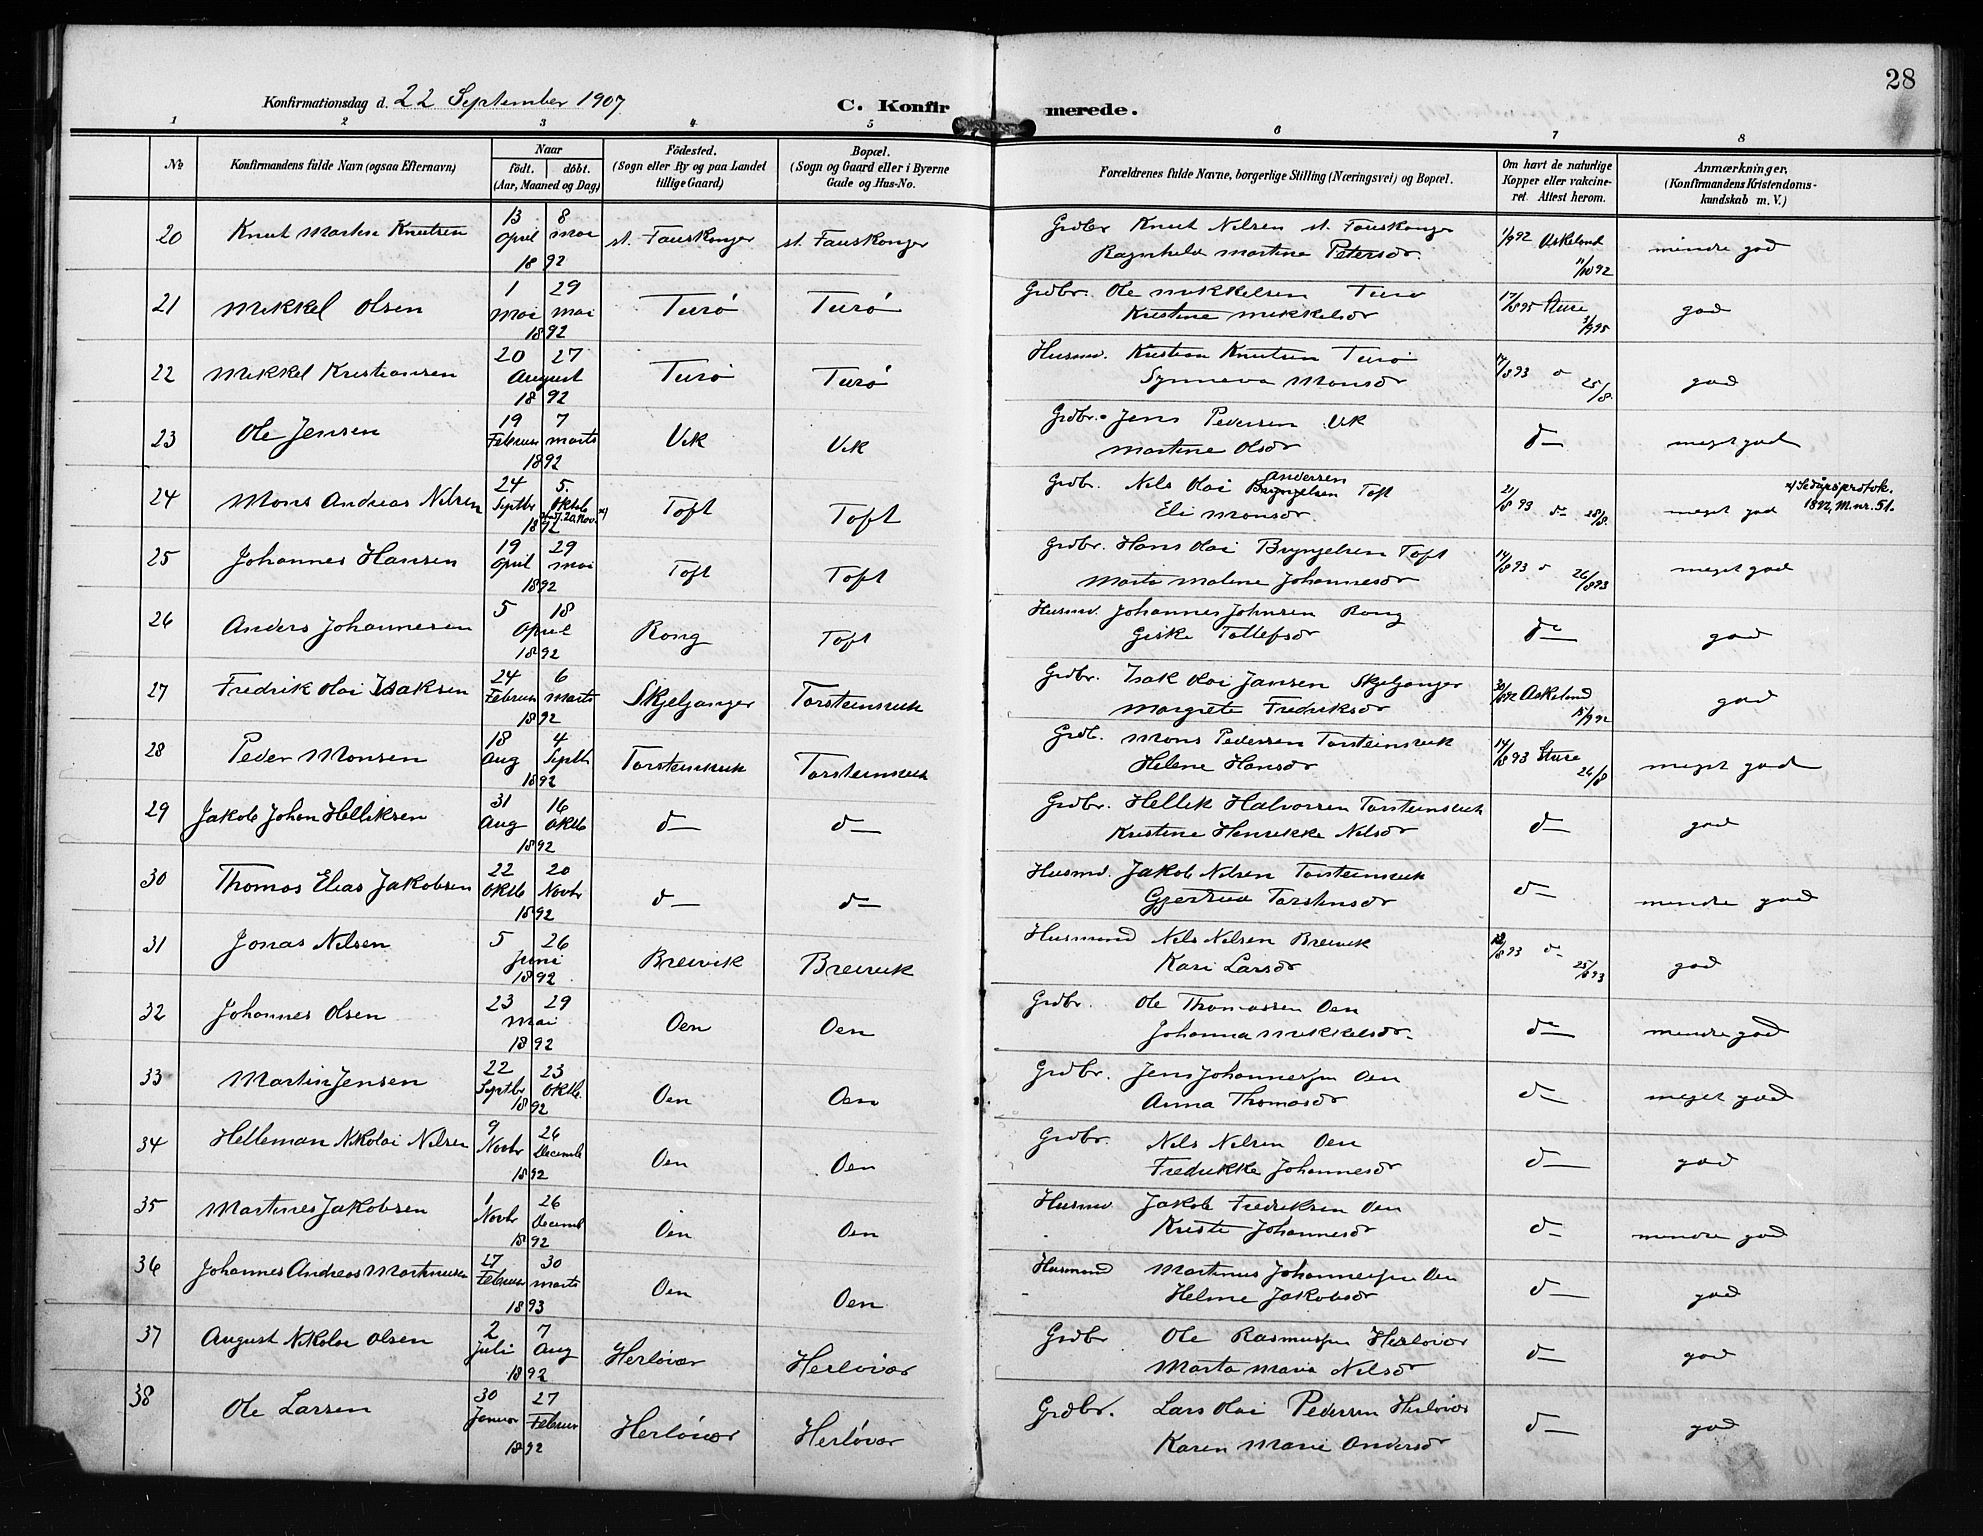 28
Konfirmationsdag d. 22 September 1907
C. Konfirmerede.
1 2 3 4 5 6 7 8
No
Konfirmandens fulde Navn (ogsaa Efternavn)
Naar
født. døbt.
(Aar, Maaned og Dag)
Fødested.
(Sogn eller By og paa Landet
tillige Gaard)
Bopæl.
(Sogn og Gaard eller i Byerne
Gade og Hus-No.
Forældrenes fulde Navne, borgerlige Stilling (Næringsvei) og Bopæl.
Om havt de naturlige
Kopper eller vakcine-
ret. Attest herom.
Anmærkninger.
(Konfirmandens Kristendoms-
kundskab m. V.)
20 Knut Martin Knutsen 13 April 8 mai 1892 st. Fauskanger st. Fauskanger Grdbr Knut Nilsen st. Fauskanger 1/9 92 Askeland 11/10 92 mindre god
Ragnhild Martine Petersdr.
21 Mikkel Olsen 1 mai 29 mai 1892 Turø Turø Grdbr. Ole Mikkelsen Turø Sture god
Kristine Mikkelsdr
22 Mikkel Kristiansen 20 27 August 1892 Turø Turø Husmd. Kristian Knutsen Turø 17/8 93 d 25/8. god
Synneva Monsdr
23 Ole Jensen 19 Februar 7 marts 1892 Vik Vik Grdbr. Jens Pedersen Vik d— meget god
Martine Olsdr
24 Mons Andreas Nilsen 24 Septbr 5. Oktob 1892 Toft Toft Grdbr. Nils Olai Bryngelsen Andersen Toft 21/8 93 d— 28/8. meget god x) Se dåpsprotok.
1892, M.nr. 51.
Eli Monsdr.
25 Johannes Hansen 19 April 29 mai 1892 Toft Toft Grdbr. Hans Olai Bryngelsen Toft 14/8 93 d 26/8 93 meget god
Marta Malene Johannesdr
26 Anders Johannesen 5 18 April 1892 Rong Toft Husmd. Johannes Johnsen Rong do— god
Giske Tollefsdr
27 Fredrik Olai Isaksen 24 Februar 6 Marts 1892 Skjelganger Torsteinsvik Grdbr. Isak Olai Jansen Skjelganger 30/8 92 Askeland 15/9 92 god
Margrete Fredriksdr
28 Peder Monsen 18 Aug 4 Septb 1892 Torsteinsvik Torsteinsvik Grdb. Mons Pedersen Torsteinsvik 14/8 93 Sture 26/8 meget god
Helene Hansdr
29 Jakob Johan Helliksen 31 Aug 16 Oktb 1892 d— d— Grdbr. Hellik Halvorsen Torsteinsvik d— god
Kristine Henrikke Nilsdr
30 Thomas Elias Jakobsen 22 Oktb 20 Novbr 1892 d— d— Husmd. Jakob Nilsen Torsteinsvik d— mindre god
Gjertrud Torstensdr
31 Jonas Nilsen 5 26 Juni 1892. Breivik Breivik Husmand Nils Nilsen Breivik d— 25/8 93 god
Kari Larsdr
32 Johannes Olsen 23 29 Mai 1892 Oen Oen Grdbr. Ole Thomassen Oen do— mindre god
Johanna Mikkelsdr.
33 Martin Jensen 22 Septbr 23 Oktb. 1892 Oen Oen Grdbr. Jens Johannessen Oen d— meget god
Anna Thomasdr
34 Helleman Nikolai Nilsen 9 Novbr 26 Decemb 1892 Oen Oen Grdbr. Nils Nilsen Oen d— god
Fredrikke Johannesdr
35 Martines Jakobsen 1 Novbr 26 Decemb 1892 Oen Oen Husmd Jakob Fredriksen Oen d— mindre god
Kristi Johannesdr
36 Johannes Andreas Martinusen 27 Februar 30 marts 1893 Oen Oen Husmand Martinus Johannessen Oen d— god
Helene Jakobsdr
37 August Nikolai Olsen 2 Juli 7 Aug 1892 Herløvær Herløvær Grdbr Ole Rasmussen Herløvær d— god
Marta Maria Nilsdr
38 Ole Larsen 30 Januar 27 Februar 1892 Herløvær Herløvær Grdbr. Lars Olai Pedersen Herløvær d— god
Karen Marie Andersdr